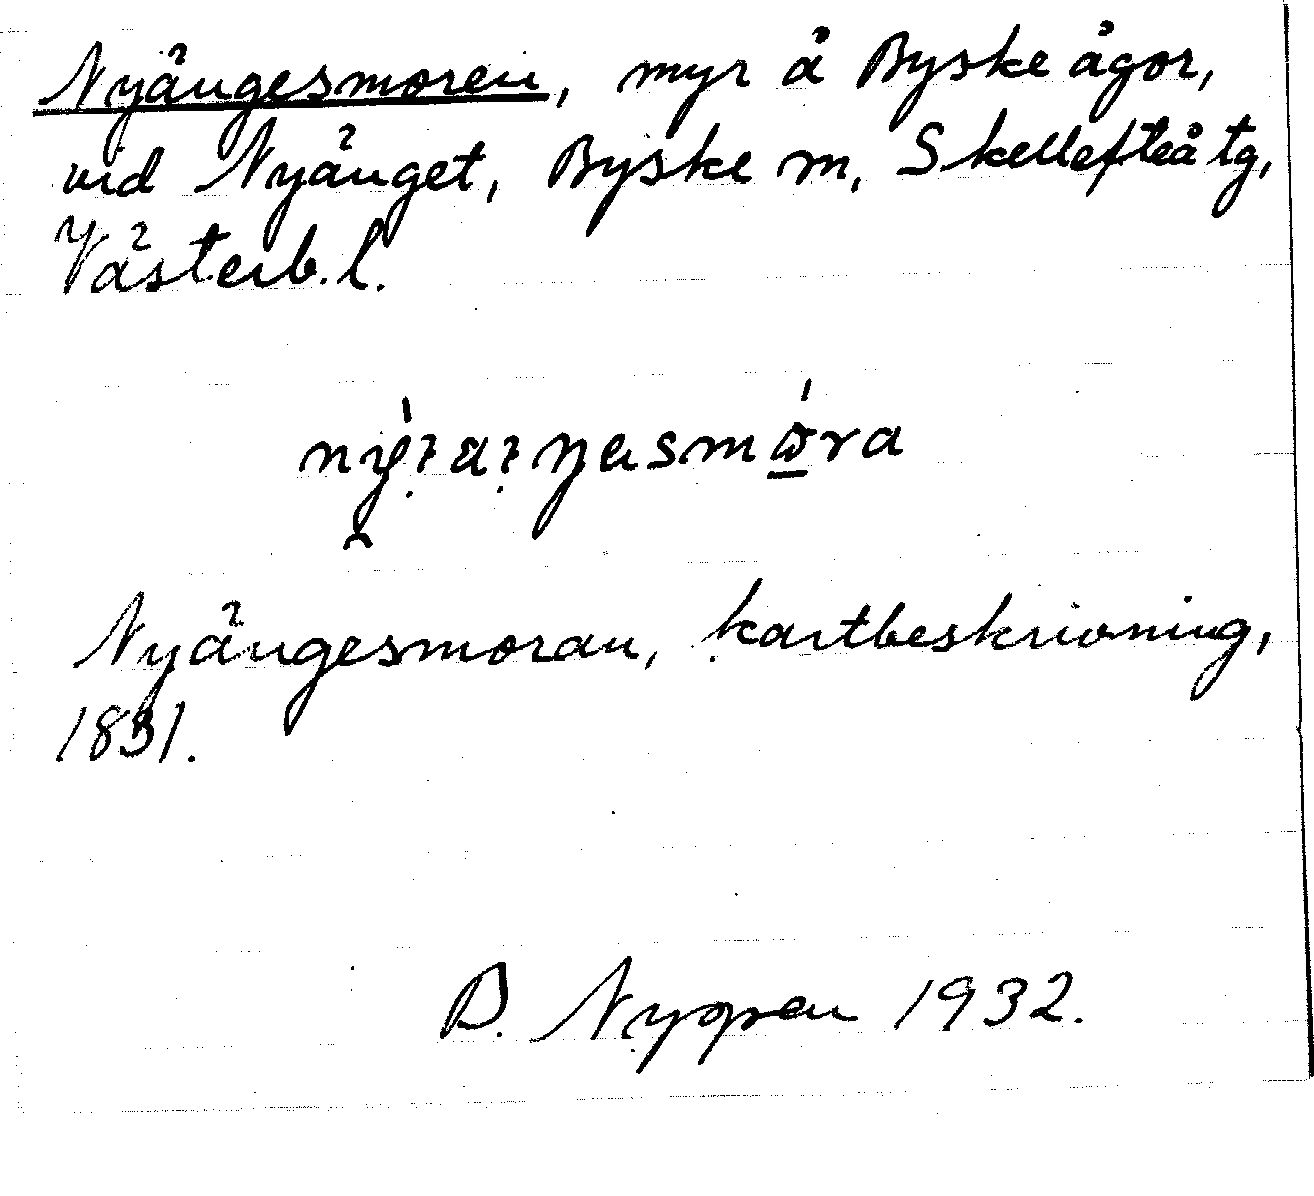 Nyängesmoren, myr å Byske ägor,
vid Nyänget, Byske sn, Skellefteå tg,
Västerb. l.
Nyängesmoran, kartbeskrivning,
1831.
B. Nygren 1932.